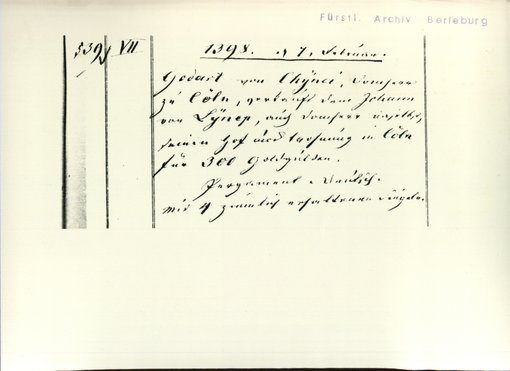 Fürstl. Archiv Berleburg
539 VII
1398. d 7. Februar.
Godart von Chÿnci, Domherr
zu Cöln, verkauft dem Johann
von Lÿnep, auch Domherr daselbst,
seinen Hof und Wohnung in Cöln
für 300 Goldgülden.
Pergament. Deutsch.
mit 4 ziemlich erhaltenen Siegeln.